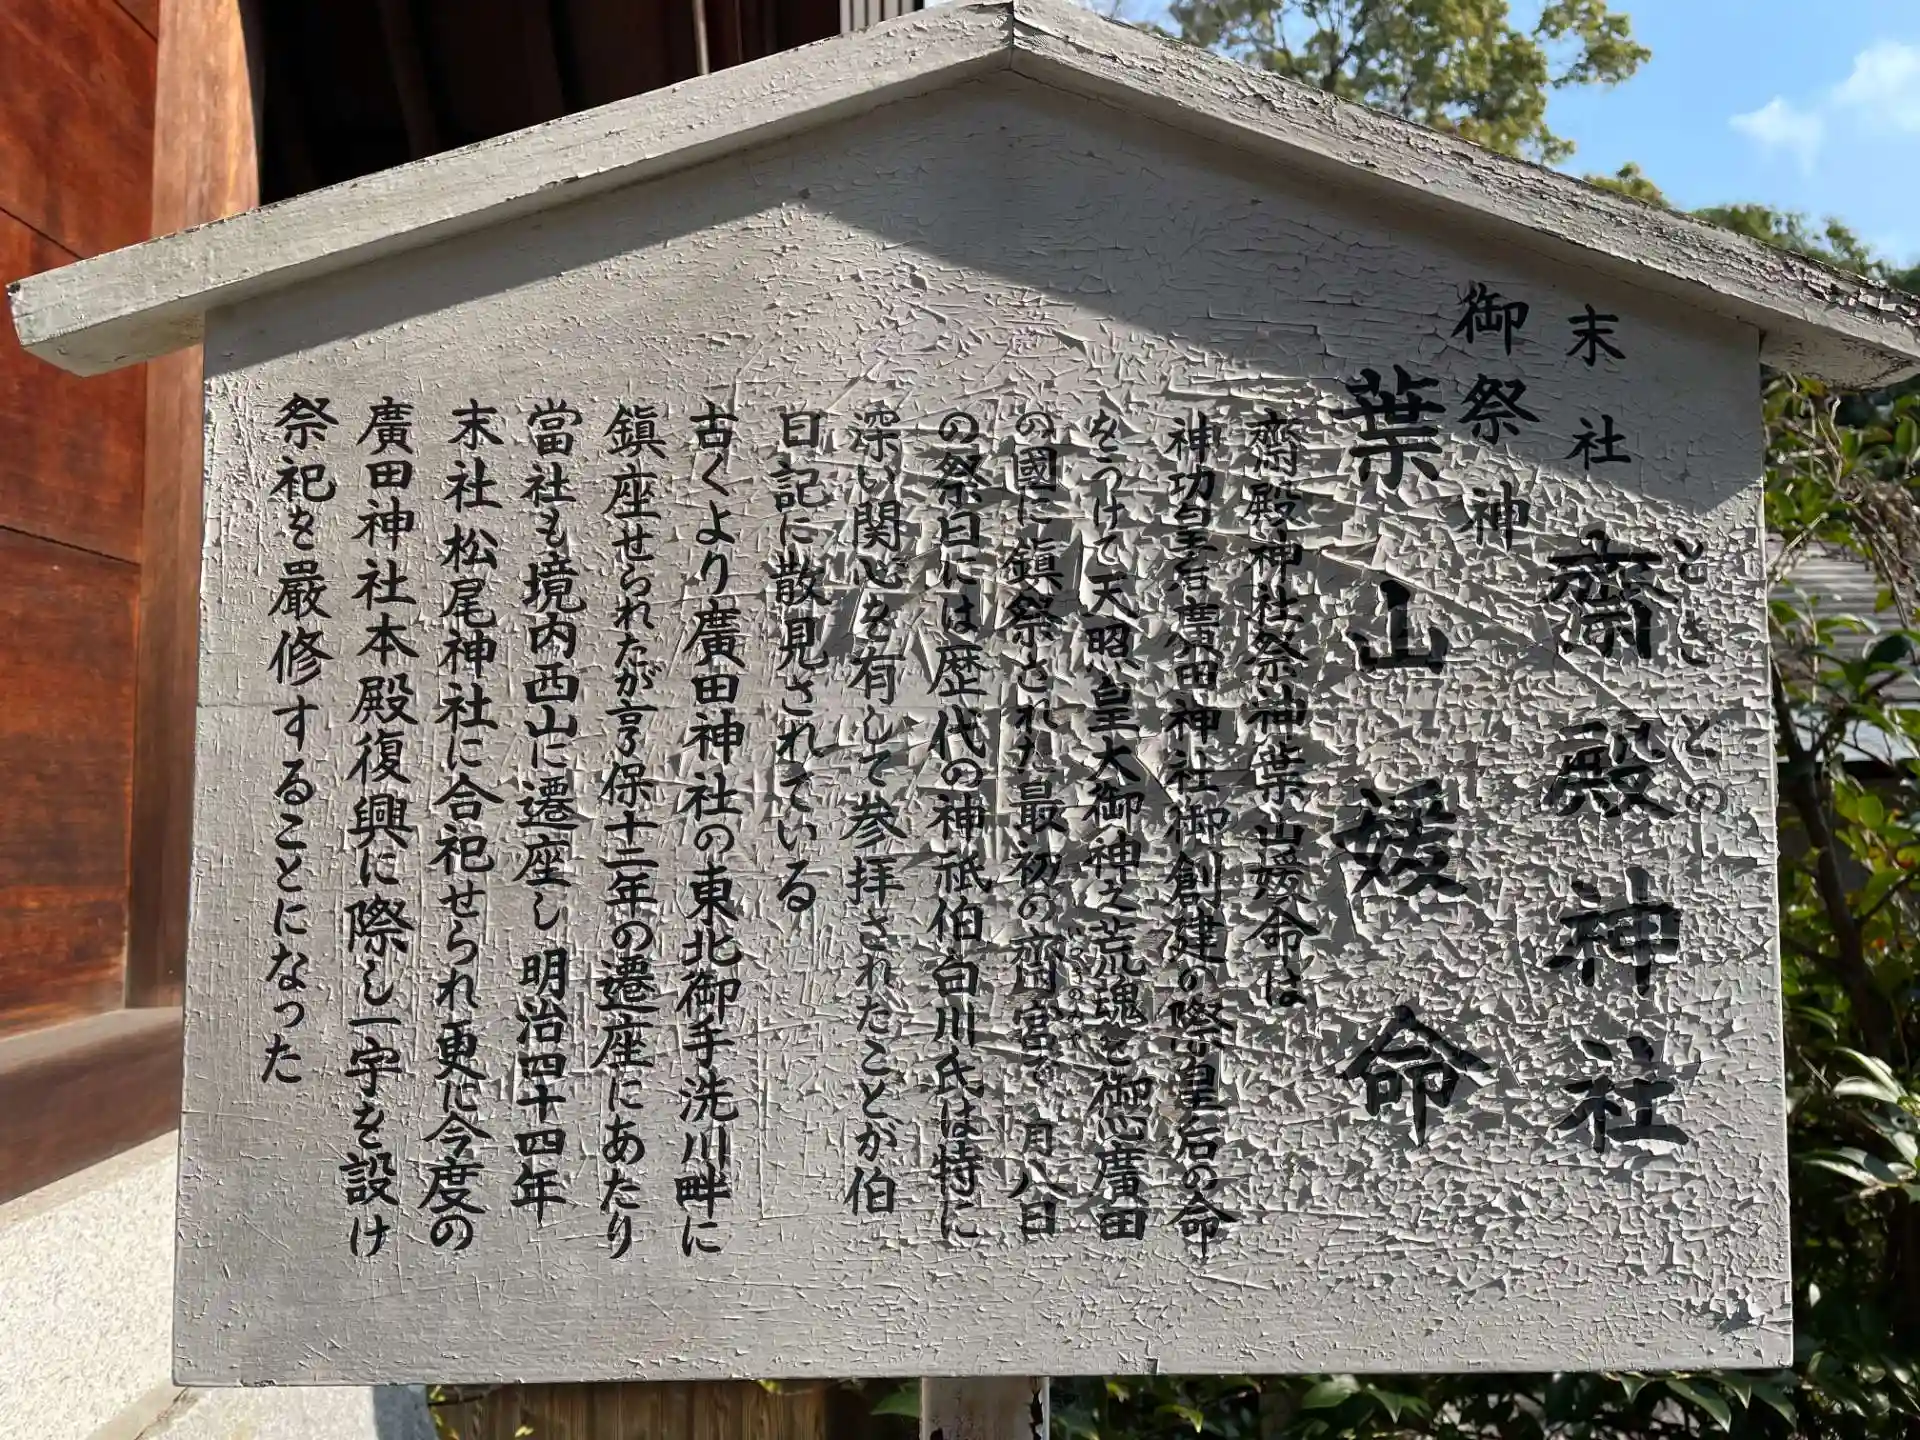 末社 齋殿神社
ときどの
御祭神
葉山媛命
齋殿神社祭神葉山媛命は
神功皇后廣田神社御創建の際皇后の命
をうけて天照皇大御神之荒魂を御心廣田
の國に鎮祭された最初の齋宮で 月八日
の祭日には歴代の神祇伯白川氏は特に
深い関心を有して参拝されたことが伯
日記に散見されている
古くより廣田神社の東北御手洗川畔に
鎮座せられたが享保十二年の遷座にあたり
當社も境内西山に遷座し 明治四十四年
末社 松尾神社に合祀せられ更に今度の
廣田神社本殿復興に際し一宇を設け
祭祀を嚴修することになった